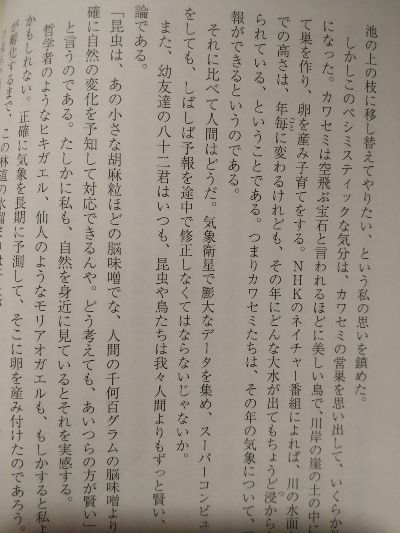 池の上の枝に移し替えてやりたい、という私の思いを鎮めた。
しかしこのペシミスティックな気分は、カワセミの営巣を思い出して、いくらか
になった。カワセミは空飛ぶ宝石と言われるほどに美しい鳥で、川岸の崖の土の中に
て巣を作り、卵を産み子育てをする。NHKのネイチャー番組によれば、川の水面か
での高さは、年毎に変わるけれども、その年にどんな大水が出てもちょうど浸から
られている、ということである。つまりカワセミたちは、その年の気象について、
報ができるというのである。
それに比べて人間はどうだ。気象衛星で膨大なデータを集め、スーパーコンピュ
をしても、しばしば予報を途中で修正しなくてはならないじゃないか。
また、幼友達の八十二君はいつも、昆虫や鳥たちは我々人間よりもずっと賢い、
論である。
「昆虫は、あの小さな胡麻粒ほどの脳味噌でな、人間の千何百グラムの脳味噌より
確に自然の変化を予知して対応できるんや。どう考えても、あいつらの方が賢い」
と言うのである。たしかに私も、自然を身近に見ているとそれを実感する。
哲学者のようなヒキガエル、仙人のようなモリアオガエルも、もしかすると私よ
かもしれない。正確に気象を長期に予測して、そこに卵を産み付けたのであろう。
が孵化するまで、この林道の水溜まりは